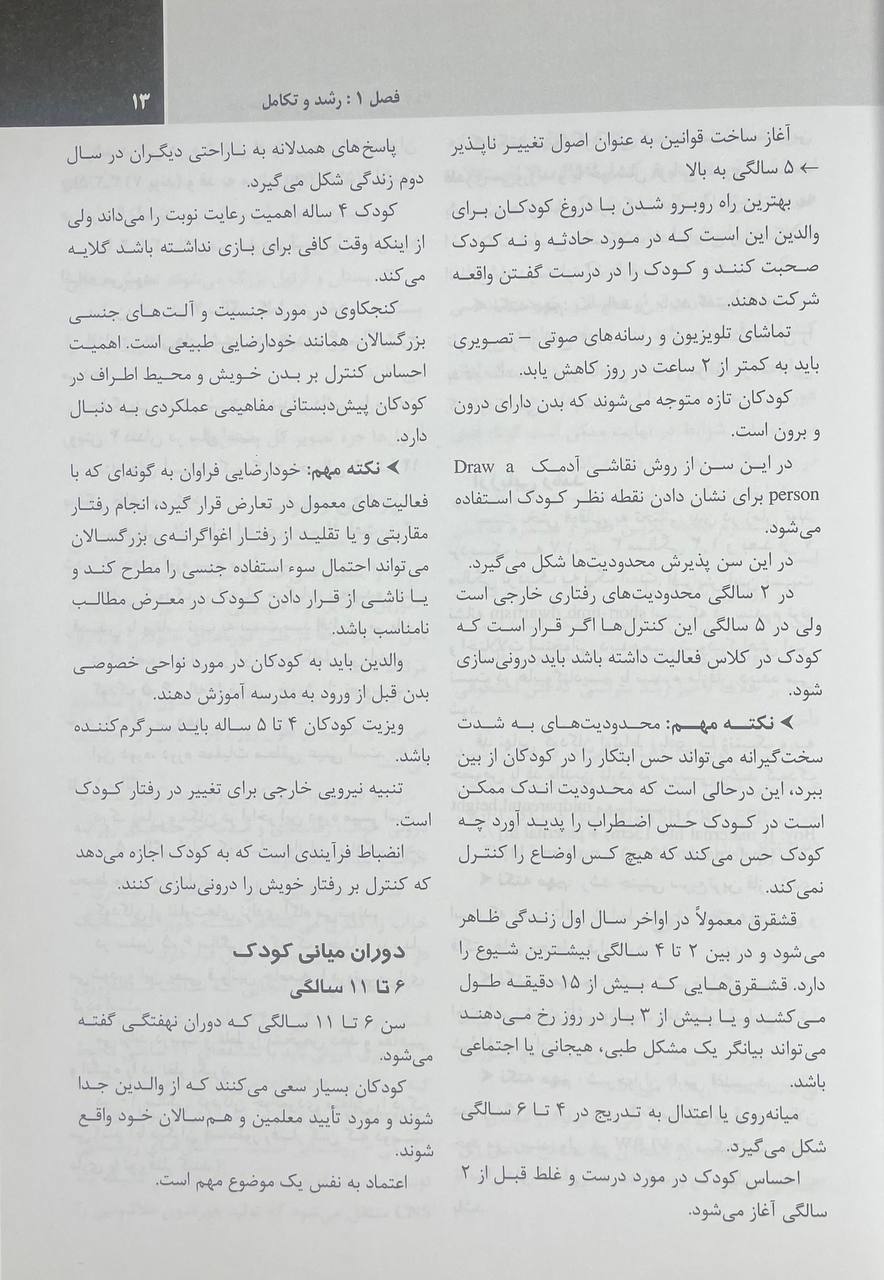 فصل ۱ : رشد و تکامل
۱۳
آغاز ساخت قوانین به عنوان اصول تغییر ناپذیر
← ۵ سالگی به بالا
بهترین راه روبرو شدن با دروغ کودکان برای
والدین این است که در مورد حادثه و نه کودک
صحبت کنند و کودک را در درست گفتن واقعه
شرکت دهند.
تماشای تلویزیون و رسانه‌های صوتی – تصویری
باید به کمتر از ۲ ساعت در روز کاهش یابد.
کودکان تازه متوجه می‌شوند که بدن دارای درون
و برون است.
در این سن از روش نقاشی آدمک Draw a
person برای نشان دادن نقطه نظر کودک استفاده
می‌شود.
در این سن پذیرش محدودیت‌ها شکل می‌گیرد.
در ۲ سالگی محدودیت‌های رفتاری خارجی است
ولی در ۵ سالگی این کنترل‌ها اگر قرار است که
کودک در کلاس فعالیت داشته باشد باید درونی‌سازی
شود.
➤ نکته مهم: محدودیت‌های به شدت
سخت‌گیرانه می‌تواند حس ابتکار را در کودکان از بین
ببرد، این درحالی است که محدودیت اندک ممکن
است در کودک حس اضطراب را پدید آورد چه
کودک حس می‌کند که هیچ کس اوضاع را کنترل
نمی‌کند.
قشقرق معمولاً در اواخر سال اول زندگی ظاهر
می‌شود و در بین ۲ تا ۴ سالگی بیشترین شیوع را
دارد. قشقرق‌هایی که بیش از ۱۵ دقیقه طول
می‌کشد و یا بیش از ۳ بار در روز رخ می‌دهند
می‌تواند بیانگر یک مشکل طبی، هیجانی یا اجتماعی
باشد.
میانه‌روی یا اعتدال به تدریج در ۴ تا ۶ سالگی
شکل می‌گیرد.
احساس کودک در مورد درست و غلط قبل از ۲
سالگی آغاز می‌شود.
پاسخ‌های همدلانه به ناراحتی دیگران در سال
دوم زندگی شکل می‌گیرد.
کودک ۴ ساله اهمیت رعایت نوبت را می‌داند ولی
از اینکه وقت کافی برای بازی نداشته باشد گلایه
می‌کند.
کنجکاوی در مورد جنسیت و آلت‌های جنسی
بزرگسالان همانند خودارضایی طبیعی است. اهمیت
احساس کنترل بر بدن خویش و محیط اطراف در
کودکان پیش‌دبستانی مفاهیمی عملکردی به دنبال
دارد.
➤ نکته مهم: خودارضایی فراوان به گونه‌ای که با
فعالیت‌های معمول در تعارض قرار گیرد، انجام رفتار
مقاربتی و یا تقلید از رفتار اغواگرانه‌ی بزرگسالان
می‌تواند احتمال سوء استفاده جنسی را مطرح کند و
یا ناشی از قرار دادن کودک در معرض مطالب
نامناسب باشد.
والدین باید به کودکان در مورد نواحی خصوصی
بدن قبل از ورود به مدرسه آموزش دهند.
ویزیت کودکان ۴ تا ۵ ساله باید سرگرم‌کننده
باشد.
تنبیه نیرویی خارجی برای تغییر در رفتار کودک
است.
انضباط فرآیندی است که به کودک اجازه می‌دهد
که کنترل بر رفتار خویش را درونی‌سازی کنند.
دوران میانی کودک
۶ تا ۱۱ سالگی
سن ۶ تا ۱۱ سالگی که دوران نهفتگی گفته
می‌شود.
کودکان بسیار سعی می‌کنند که از والدین جدا
شوند و مورد تأیید معلمین و هم‌سالان خود واقع
شوند.
اعتماد به نفس یک موضوع مهم است.